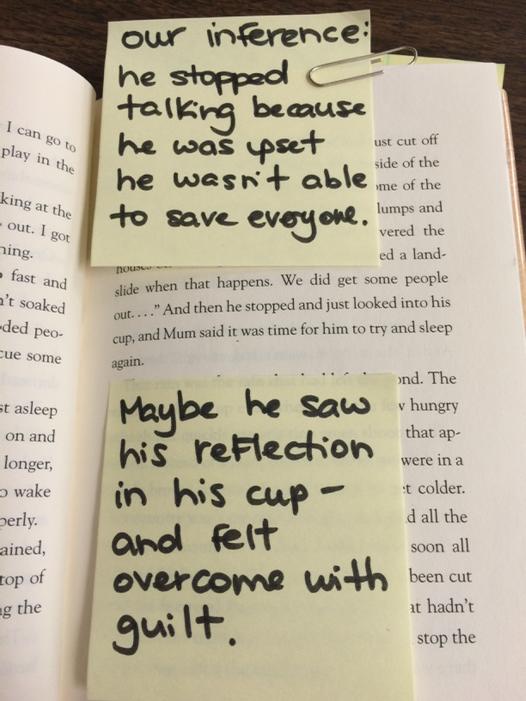 I can go to
play in the
king at the
out. I got
ning.
fast and
n't soaked
ded peo-
cue some
st asleep
on and
longer,
o wake
perly.
ained,
top of
g the
our inference:
he stopped
talking because
he was upset
he wasn't able
to save everyone.
ust cut off
side of the
ome of the
lumps and
vered the
ed a land-
slide when that happens. We did get some people
out. . . .” And then he stopped and just looked into his
cup, and Mum said it was time for him to try and sleep
again.
ond. The
w hungry
that ap-
were in a
t colder.
d all the
soon all
been cut
at hadn't
stop the
Maybe he saw
his reflection
in his cup –
and felt
overcome with
guilt.